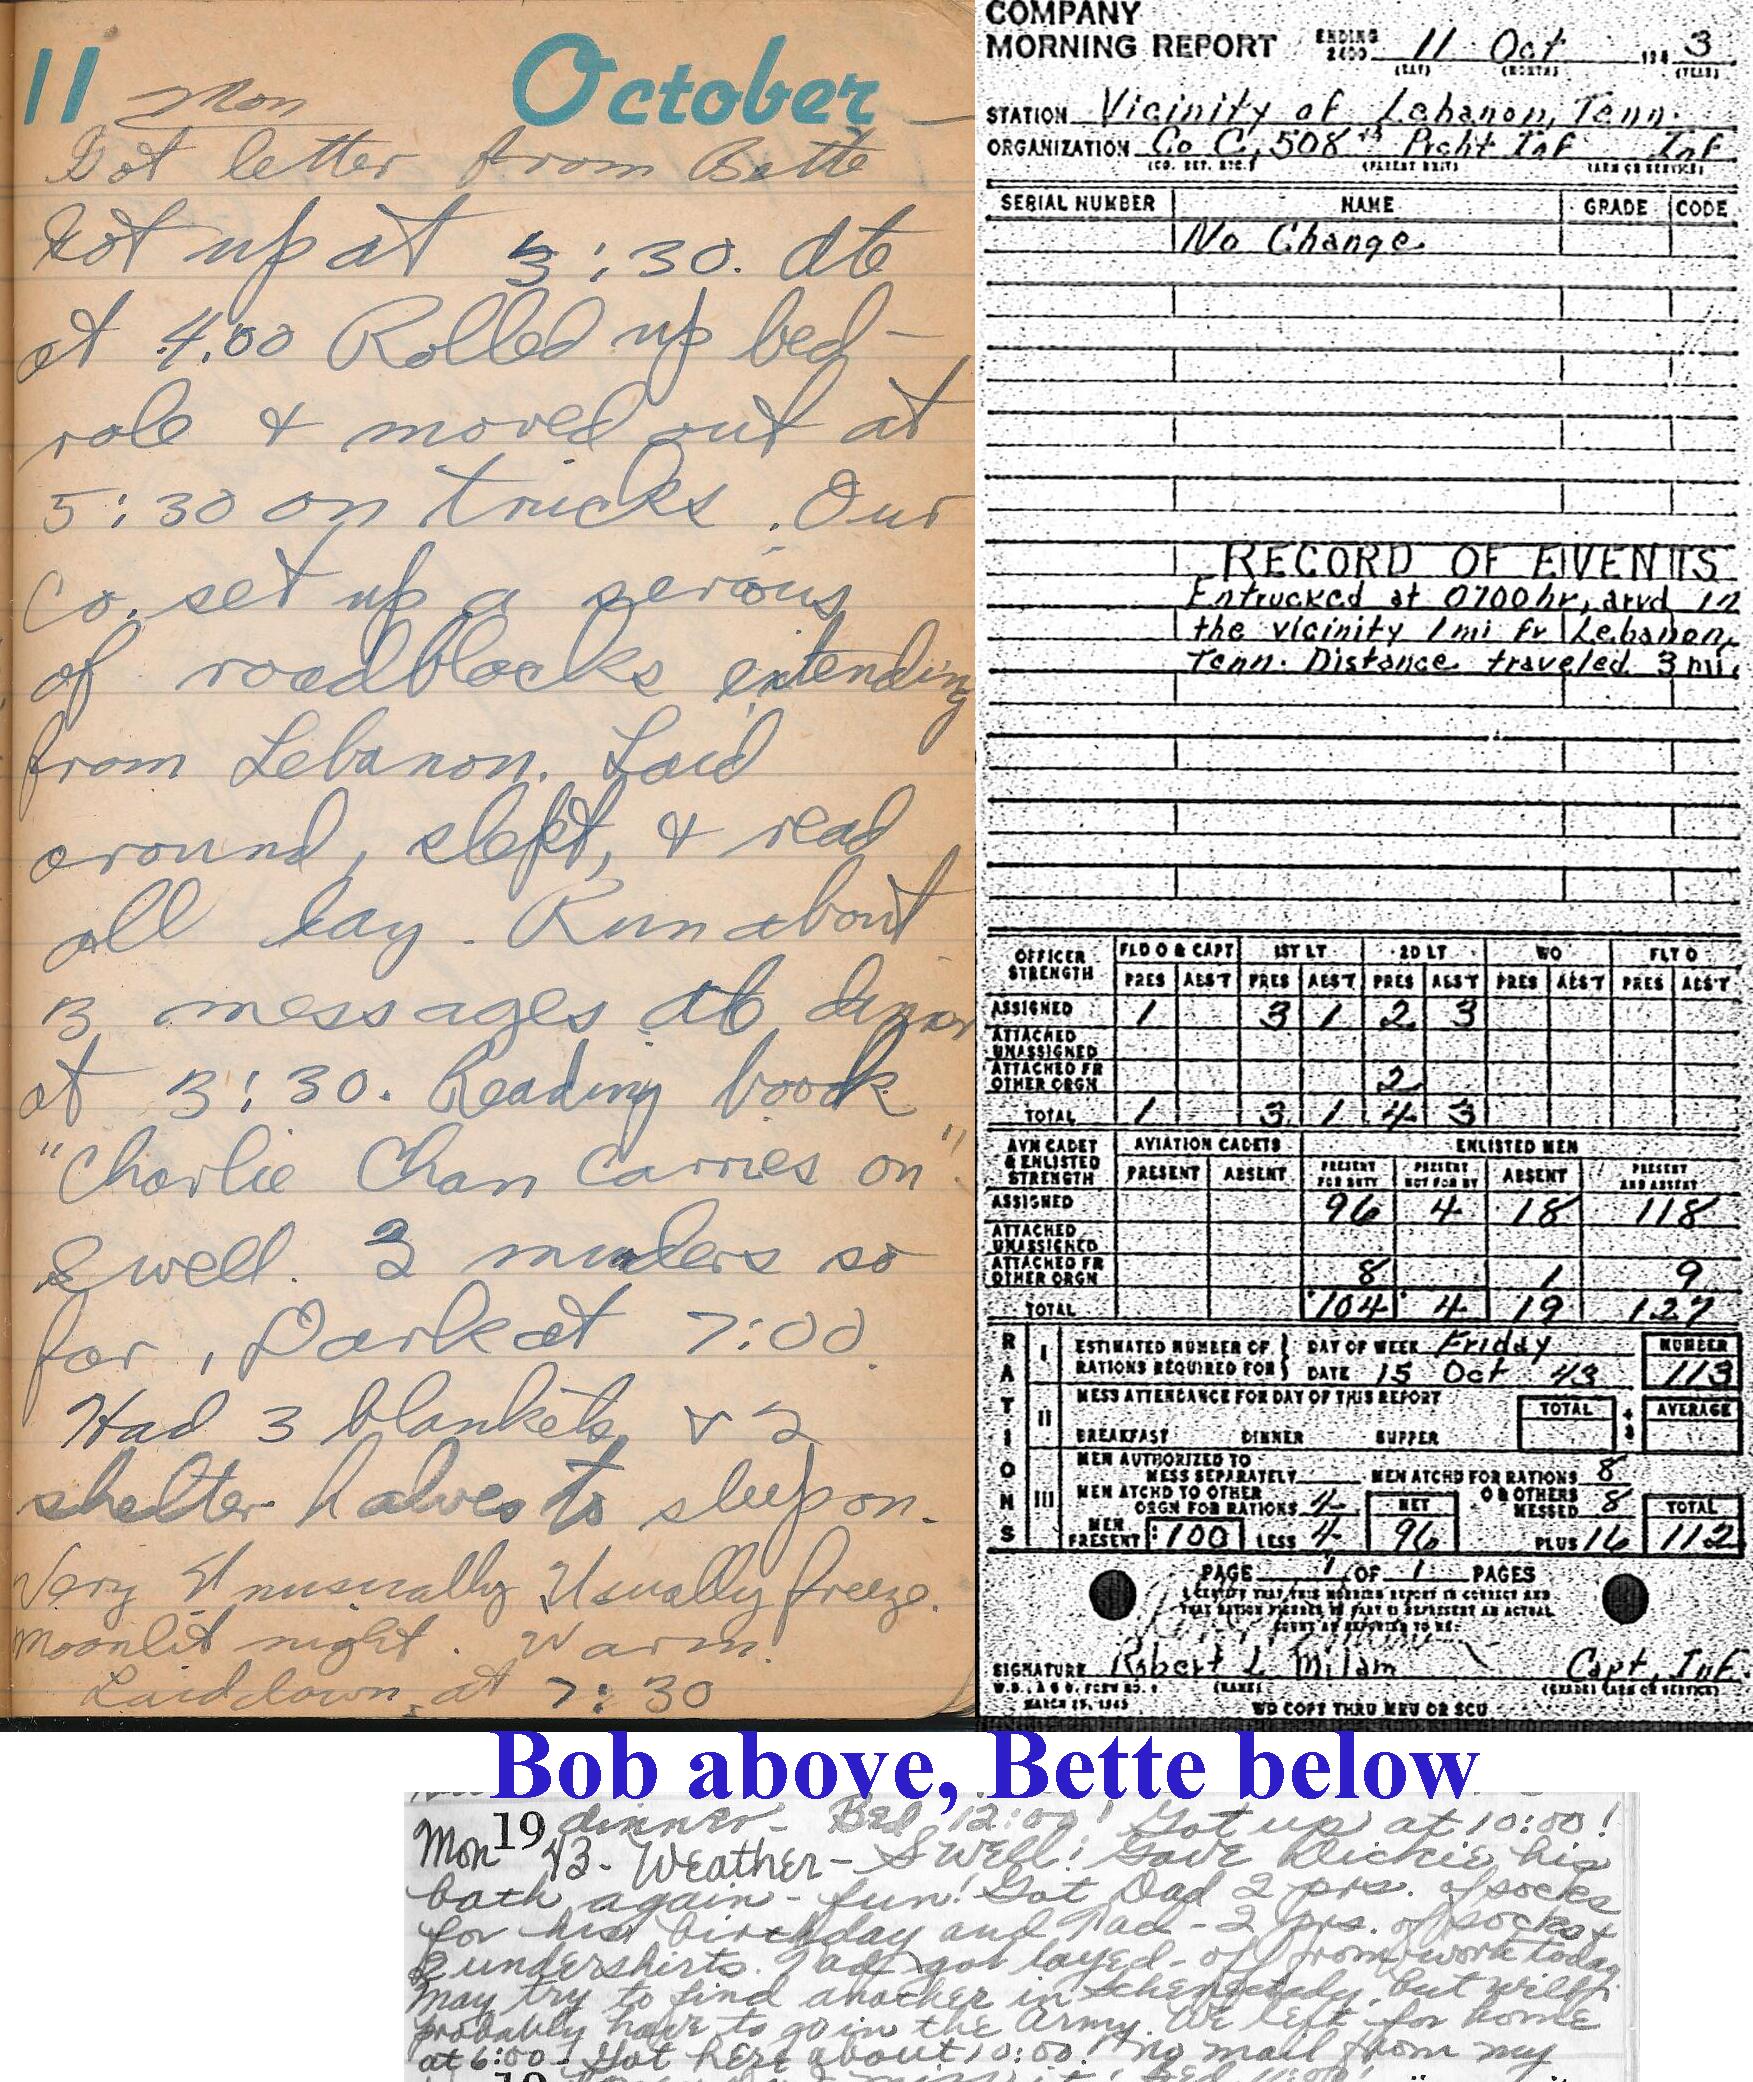 11 Mon October
Got letter from Bette
Got up at 3:30. Ate
at 4:00 Rolled up bed-
role & moved out at
5:30 on trucks. Our
Co. set up a serious
of roadblocks extending
from Lebanon. Laid
around, slept, & read
all day. Run about
3 messages. Ate dinner
at 3:30. Reading book
"Charlie Chan Carries on".
Swell. 3 murders so
far, Dark at 7:00.
Had 3 blankets & 2
shelter halves to sleep on.
Very Unusually Usually freeze.
Moonlit night. Warm!
Laid down at 7:30
COMPANY
MORNING REPORT ENDING 2400 11 Oct 194 3
(DAY) (MONTH) (YEAR)
STATION Vicinity of Lebanon, Tenn.
ORGANIZATION Co C, 508th Prcht Inf Inf
(CO. DET. ETC.) (PARENT UNIT) (ARM OR SERVICE)
SERIAL NUMBER NAME GRADE CODE
No Change
RECORD OF EVENTS
Entrucked at 0700 hr, arvd in
the vicinity 1 mi fr Lebanon,
Tenn. Distance traveled 3 mi.
OFFICER STRENGTH FLD O & CAPT 1ST LT 2D LT WO FLT O
PRES ABS'T PRES ABS'T PRES ABS'T PRES ABS'T PRES ABS'T
ASSIGNED 1 3 1 2 3
ATTACHED UNASSIGNED
ATTACHED FR OTHER ORGN 2
TOTAL 1 3 1 4 3
AVN CADET & ENLISTED STRENGTH AVIATION CADETS ENLISTED MEN
PRESENT ABSENT PRESENT FOR DUTY PRESENT NOT FOR DY ABSENT PRESENT AND ABSENT
ASSIGNED 96 4 18 118
ATTACHED UNASSIGNED
ATTACHED FR OTHER ORGN 8 1 9
TOTAL 104 4 19 127
RATIONS
I ESTIMATED NUMBER OF RATIONS REQUIRED FOR DAY OF WEEK Friday NUMBER
DATE 15 Oct 43 113
II MESS ATTENDANCE FOR DAY OF THIS REPORT TOTAL ÷ 3 AVERAGE
BREAKFAST DINNER SUPPER
III MEN AUTHORIZED TO MESS SEPARATELY MEN ATCHD FOR RATIONS 8
MEN ATCHD TO OTHER ORGN FOR RATIONS 4 NET OR OTHERS MESSED 8 TOTAL
MEN PRESENT 100 LESS 4 96 PLUS 16 112
PAGE 1 OF 1 PAGES
I CERTIFY THAT THIS MORNING REPORT IS CORRECT AND
THAT RATION FIGURES IN PART II REPRESENT AN ACTUAL
COUNT AS REPORTED TO ME.
SIGNATURE Robert L Milam Capt, Inf.
W.D., A.G.O. FORM NO. 1 (NAME) (GRADE) (ARM OR SERVICE)
MARCH 15, 1943 WD COPY THRU MRU OR SCU
Bob above, Bette below
dinner - Bed 12:00! Got up at 10:00!
Mon 19 43 - Weather - Swell! Gave Dickie his
bath again - fun! Got Dad 2 prs. of socks
for his birthday and Tad - 2 prs. of socks &
2 undershirts. Tad got layed-off from work today
May try to find another in Schenectady, but will
probably have to go in the Army. We left for home
at 6:00 - Got here about 10:00! No mail from my
19